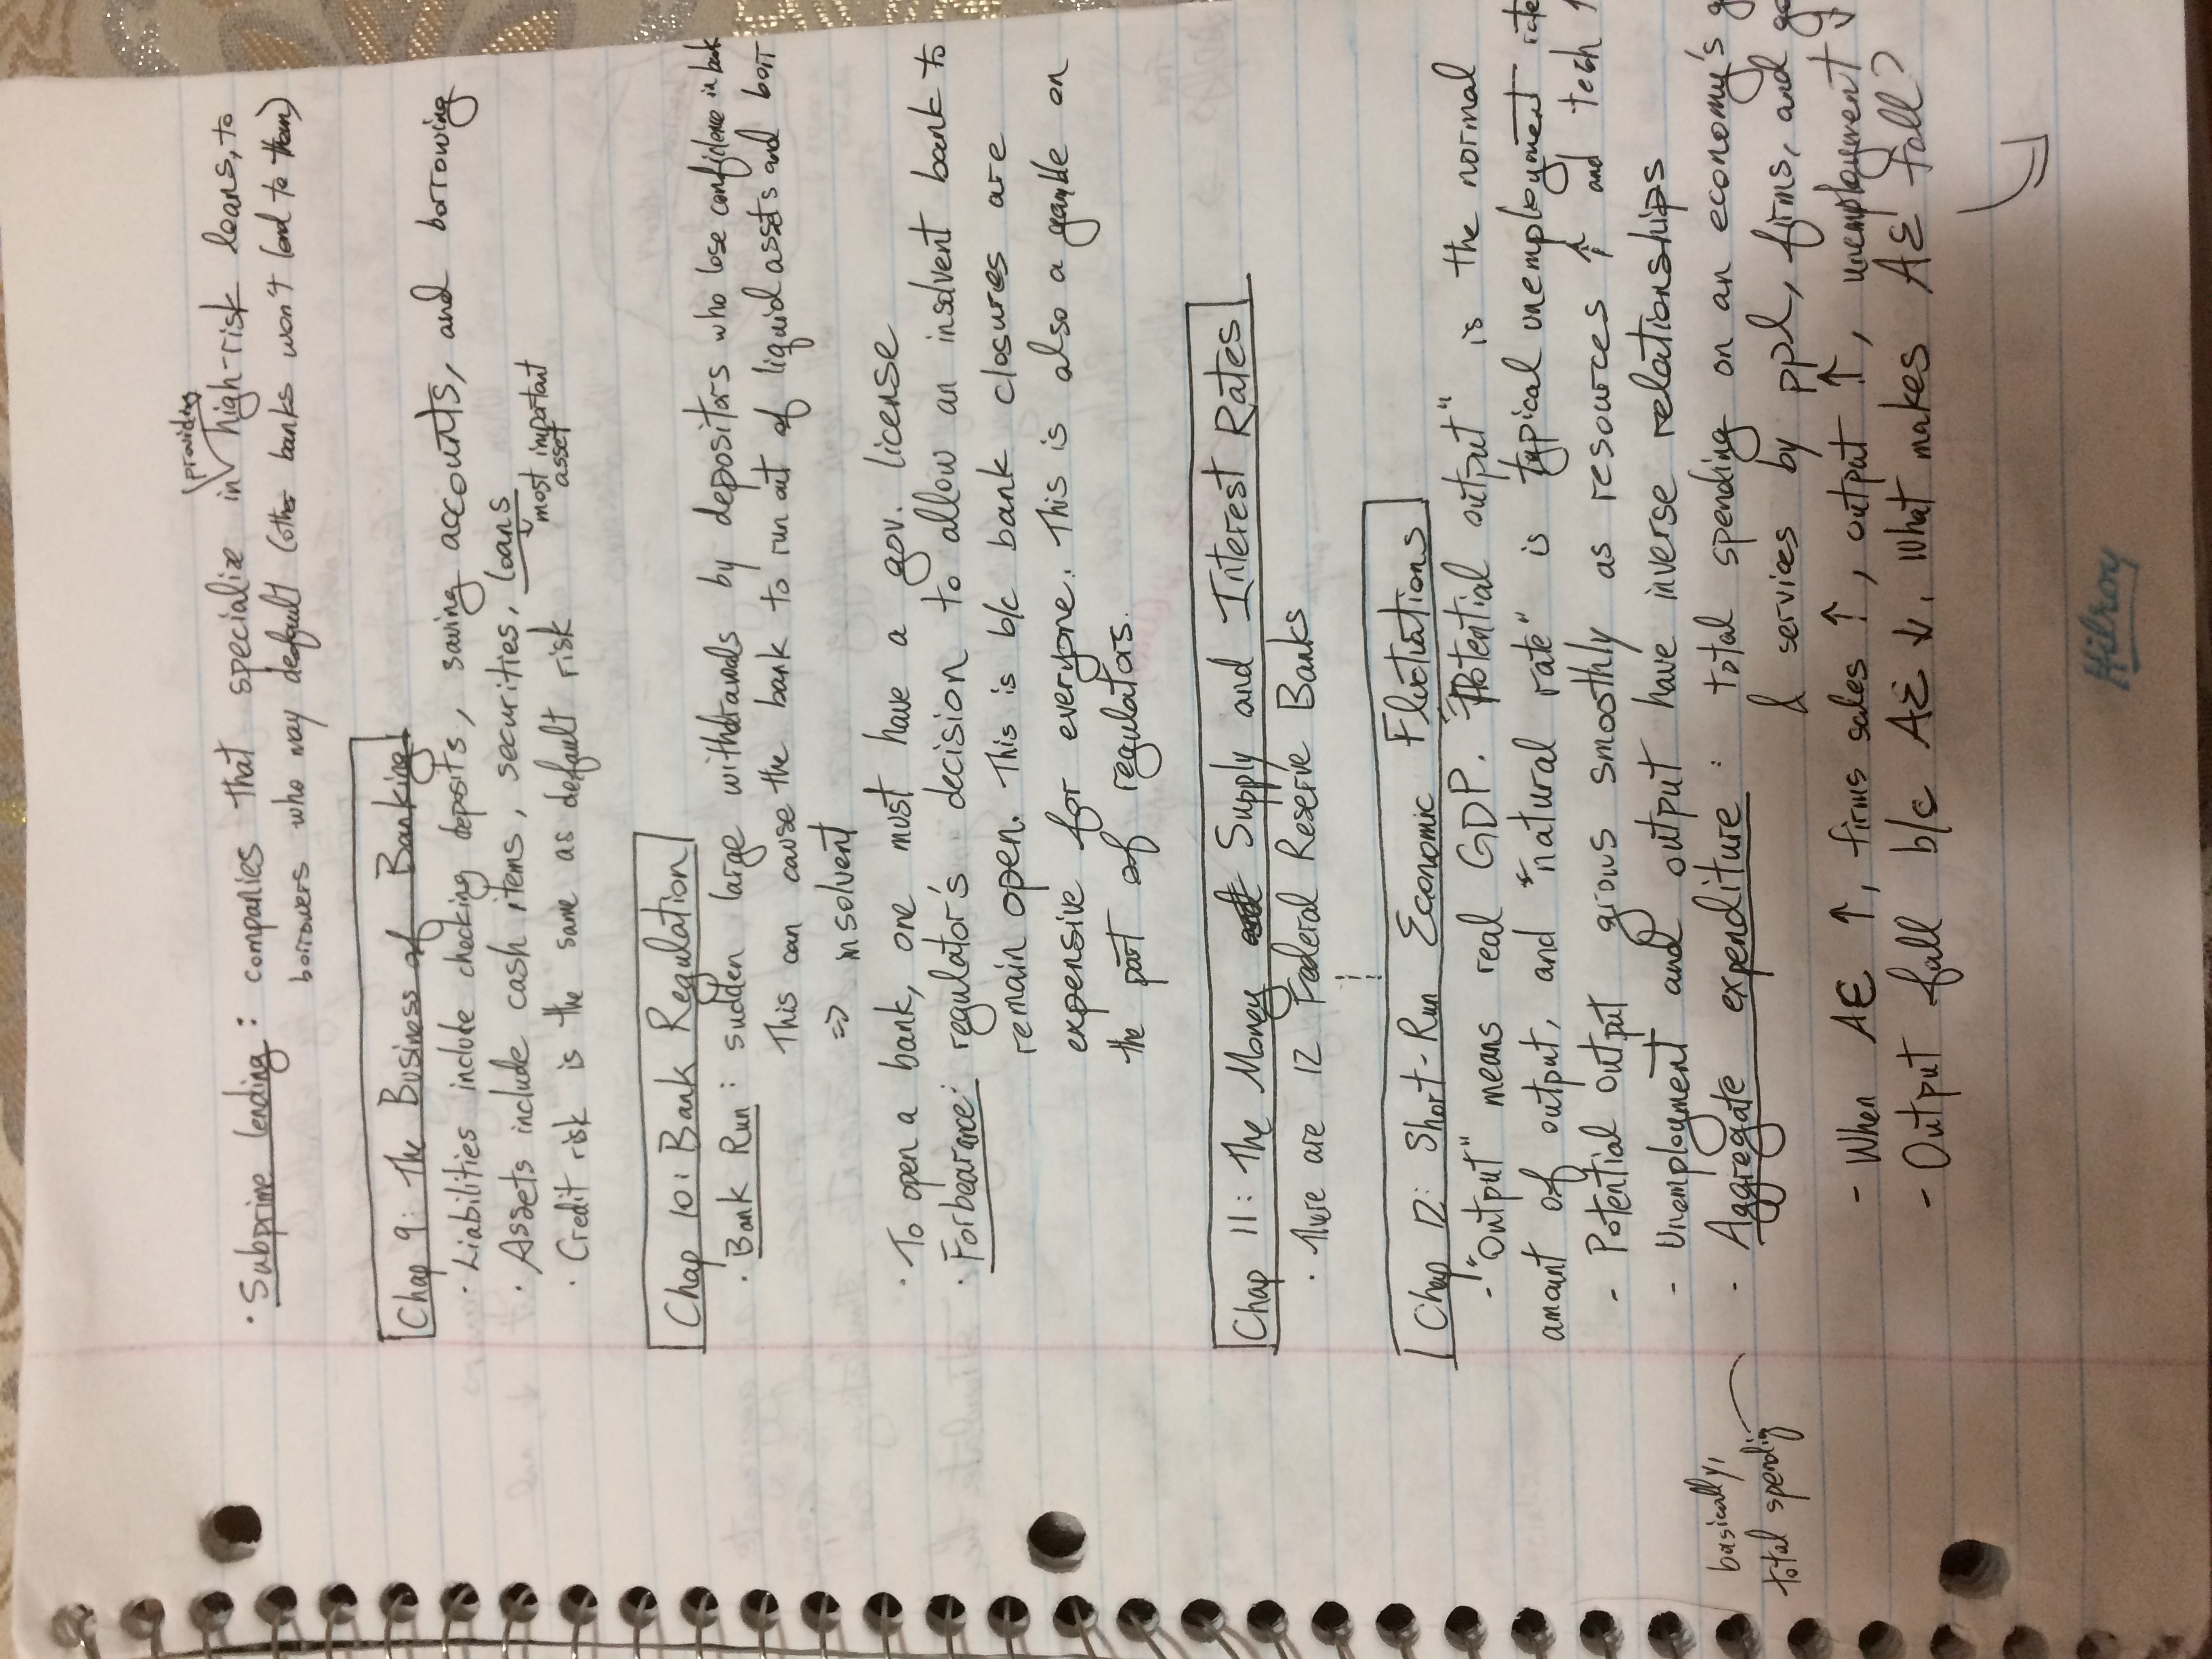 providing
· Subprime lending : companies that specialize in high-risk loans, to
borrowers who may default (other banks won't lend to them)
Chap 9: The Business of Banking
· Liabilities include checking deposits, saving accounts, and borrowing
· Assets include cash items, securities, loans
most important
asset
· Credit risk is the same as default risk
Chap 10: Bank Regulation
· Bank Run : sudden large withdrawals by depositors who lose confidence in bank
This can cause the bank to run out of liquid assets and borr
=> insolvent
· To open a bank, one must have a gov. license
· Forbearance: regulator's decision to allow an insolvent bank to
remain open. This is b/c bank closures are
expensive for everyone. This is also a gamble on
the part of regulators.
Chap 11: The Money Supply and Interest Rates
· There are 12 Federal Reserve Banks
Chap 12: Short-Run Economic Fluctuations
- "Output" means real GDP. "Potential output" is the normal
amount of output, and "natural rate" is typical unemployment rate
- Potential output grows smoothly as resources ↑ and tech ↑
- Unemployment and output have inverse relationships
basically,
total spending
- Aggregate expenditure : total spending on an economy's g
& services by ppl, firms, and go
- When AE ↑, firms sales ↑, output ↑, unemployment ↓
- Output fall b/c AE ↓. What makes AE fall?
Hilroy